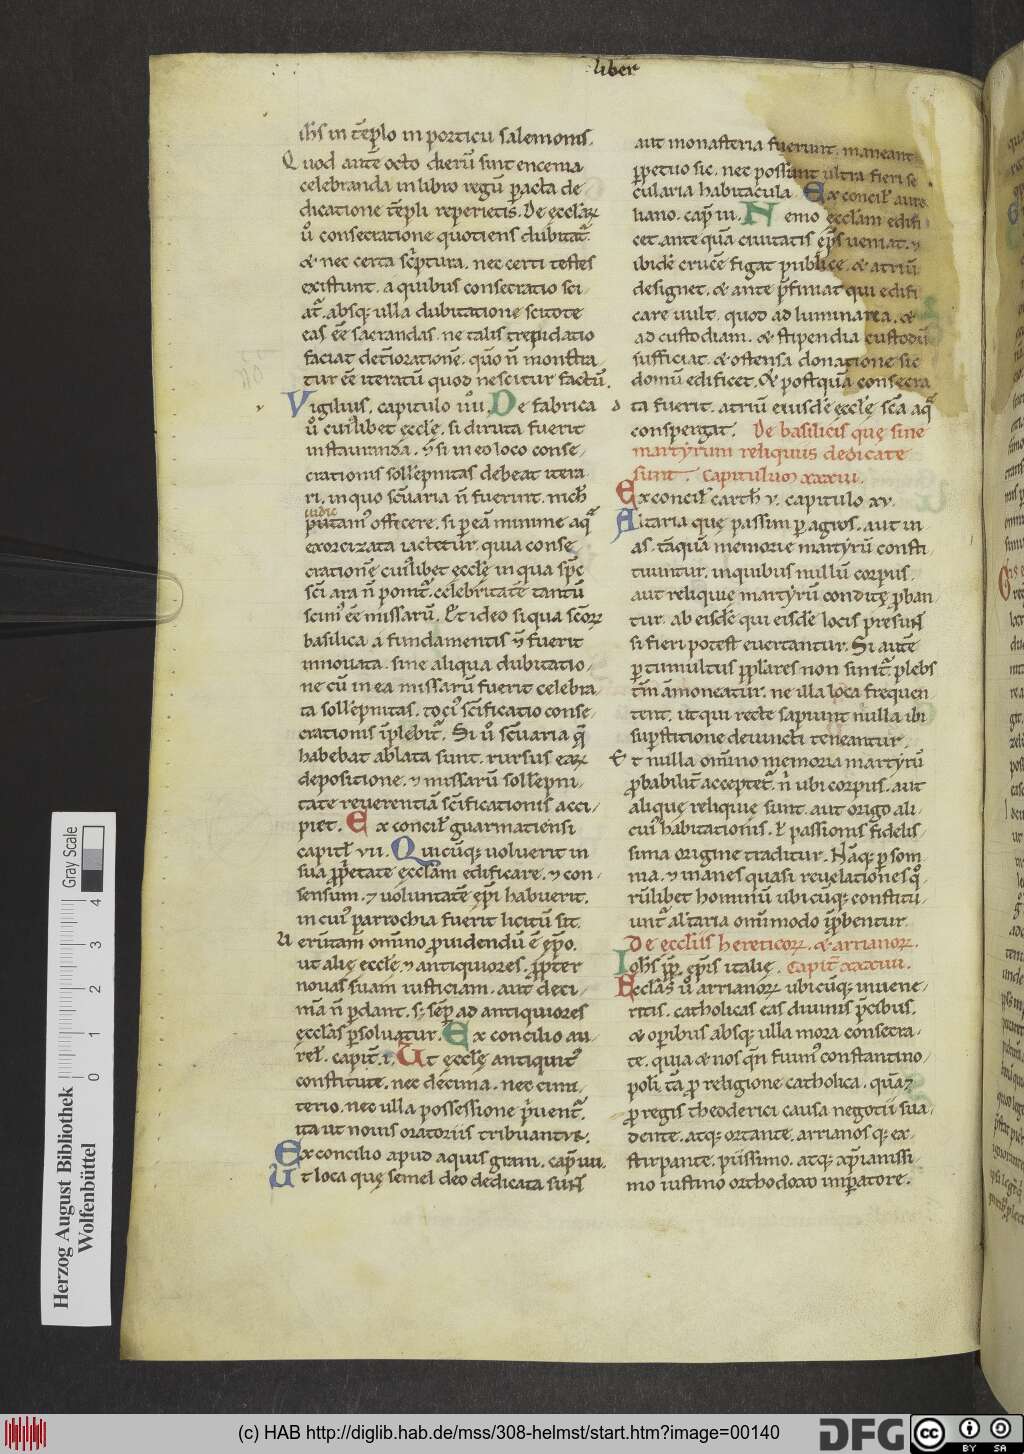 liber
ih̄s in tēplo in porticu salemonis.
Quod autē octo dierū sint encenia
celebranda in libro regū ꝑacta de
dicatione tēpli reperietis. De ęccl̄aꝝ
ů consecratione quotiens dubitat᷑.
& nec certa sc̄ptura. nec certi testes
existunt. a quibus consecratio sci
at᷑. absq; ulla dubitatione scitote
eas ēē sacrandas. ne talis trepidatio
faciat det̄iorationē. q̄uo n̄ monstra
tur ēē iteratū quod nescitur factū.
Vigilius. capitulo iiii. De fabrica
ů cuiꝰlibet ęccl̄ę. si diruta fuerit
instauranda. ⁊ si in eo loco conse-
crationis soll̄epnitas debeat itera
ri. in quo sc̄uaria n̄ fuerint. nich̄
iudic
putamꝰ officere. si ꝑ eā minime aq̄
exorcizata iactetur. quia conse
crationē cuiꝰlibet ęccl̄ę in qua sp̄c
sc̄i ara n̄ ponit᷑. celebritatē tantū
scimꝰ ēē missarū. Et ideo si qua sc̄oꝝ
basilica a fundamentis ⁊ fuerit
innouata. sine aliqua dubitatio-
ne cū in ea missarū fuerit celebra
ta soll̄epnitas. tociꝰ sc̄ificatio conse-
crationis īplebit᷑. Si ů sc̄uaria q̄
habebat ablata sunt. rursus eaꝝ
depositione. ⁊ missarū soll̄epni
tate reuerentiā sc̄ificationis acci-
piet. Ex concil̄ guarmatiensi
capitl̄ vii. Quicūq; uoluerit in
sua ꝓp̄etate ęccl̄am edificare. ⁊ con-
sensum. ⁊ uoluntatē ep̄i habuerit.
in cuiꝰ parrochia fuerit licitū sit.
Uerūtam̄ omīno ꝓuidendū ē ep̄o.
ut alię eccl̄ę ⁊ antiquiores. ꝓpter
nouas suam iusticiam. aut deci-
mā n̄ ꝑdant. s; sēꝑ ad antiquiores
ęccl̄as ꝑsoluatur. Ex concilio au-
rel̄. capit̄. i. Ut ęccl̄ę antiquitꝰ
constitute. nec decima. nec cimi-
terio. nec ulla possessione p̄uent᷑.
ita ut nouis oratoriis tribuantur.
Ex concilio apud aquis grani. cap̄ iiii.
Ut loca quę semel deo dedicata sunt
aut monasteria fuerunt. maneant
ꝑpetuo sic. nec possunt ultra fieri se
cularia habitacula. Ex concil̄ aure
liano. cap̄ iii. Nemo ęccl̄am edifi
cet. ante quā ciuitatis ep̄s ueniat. ⁊
ibidē crucē figat publice. & atriū
designet. & ante p̄finiat qui edifi
care uult. quod ad luminaria. &
ad custodiam. & stipendia custodū
sufficiat. & ostensa donatione sic
domū edificet. Et postquā consecra
ta fuerit. atriū eiusdē ęccl̄ę sc̄a aq̄
conspergat. De basilicis quę sine
martyrum reliquiis dedicate
sunt. Capitulum xxxiii.
Ex concil̄ carth̄ v. capitulo xv.
Altaria quę passim ꝑ agros. aut ui
as. tāquā memorie martyrū consti
tuuntur. in quibus nullū corpus.
aut reliquię martyrū conditę ꝓban
tur. ab eisdē qui eisdē locis presunt
si fieri potest euertantur. Si autē
ꝑ tumultus ꝓpl̄ares non sinit᷑. plebs
tm̄ āmoneatur. ne illa loca frequen
tent. ut qui recte sapiunt nulla ibi
suꝑstitione deuincti teneantur.
Et nulla omīno memoria martyrū
ꝓbabilit̄ acceptet᷑. n̄ ubi corpus. aut
alique reliquię sunt. aut origo ali-
cuiꝰ habitationis. ł passionis fidelis-
sima origine traditur. Nāq; ꝑ som
nia. ⁊ inanes quasi reuelationes q̊
rūlibet hominū ubicūq; constitu
unt᷑ altaria omīmodo īꝓbentur.
De eccl̄iis hereticoꝝ. & arrianoꝝ.
Ioh̄s p̄p̄. ep̄is italię. Capit̄ xxxiiii.
Eccl̄as ů arrianoꝝ ubicūq; inuene-
ritis. catholicas eas diuinis p̄cibus.
& opibus absq; ulla mora consecra-
te. quia & nos q̄n fuimꝰ constantino-
poli tā ꝓ religione catholica. quā ⁊
ꝓ regis theoderici causa negotii sua-
dente. atq; ortante. arrianos q; ex-
stirpante. piissimo. atq; xp̄ianissi
mo iustino orthodoxo inꝑatore.
Herzog August Bibliothek
Wolfenbüttel
Gray Scale
0 1 2 3 4
(c) HAB http://diglib.hab.de/mss/308-helmst/start.htm?image=00140
DFG
cc BY SA